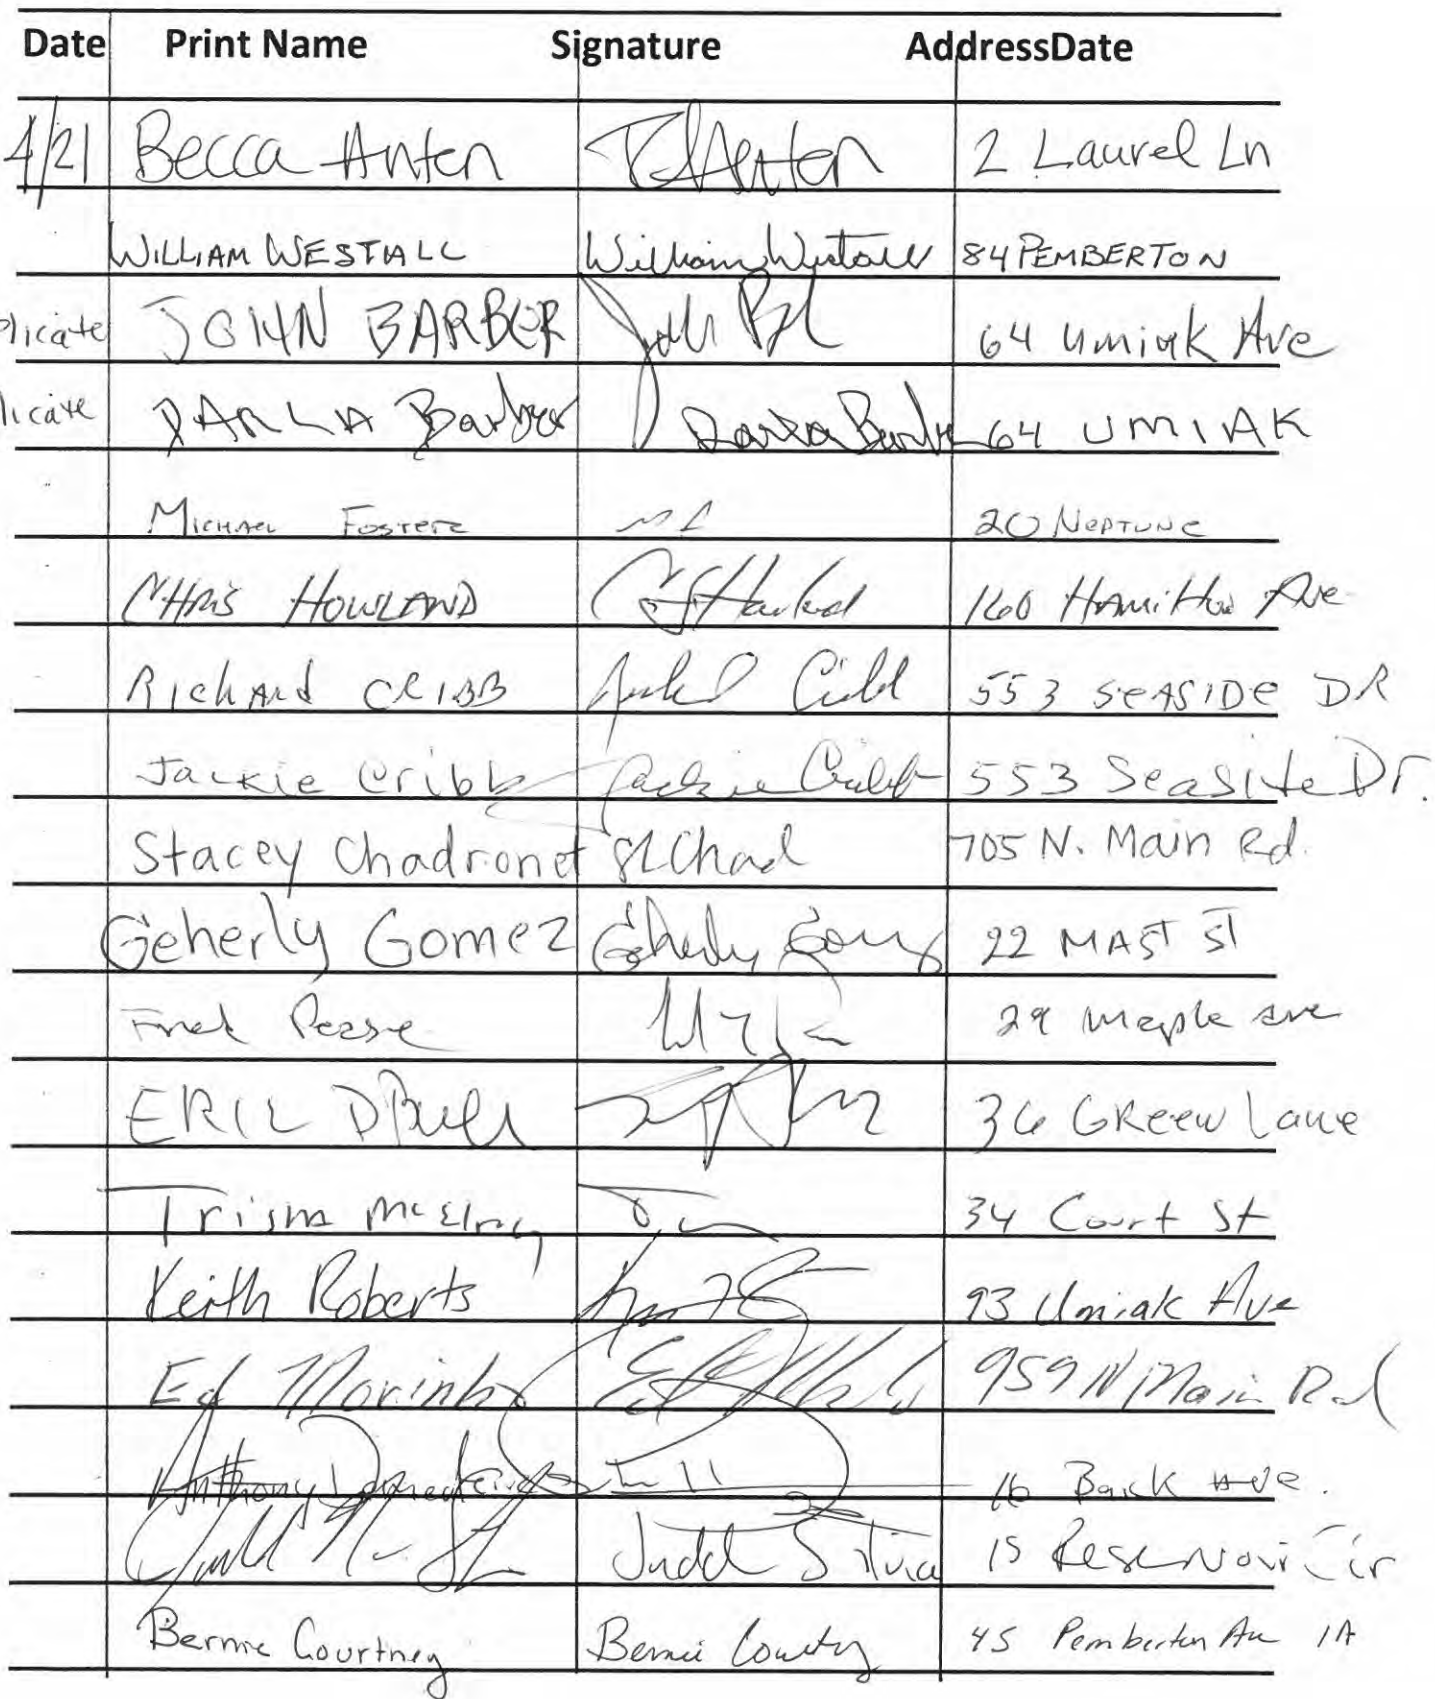 Date Print Name Signature AddressDate
4/21 Becca Anten 2 Laurel Ln
WILLIAM WESTALL William Westall 84 PEMBERTON
plicate JOHN BARBER 64 Umiak Ave
licate DARLA Barber Darla Barber 64 UMIAK
MICHAEL FOSTER 20 NEPTUNE
CHRIS HOWLAND 160 HAMILTON Ave
RICHARD CRIBB 553 SEASIDE DR
Jackie Cribb Jackie Cribb 553 Seaside Dr.
Stacey Chadronet 705 N. Main Rd.
Geherly Gomez Geherly Gomez 22 MAST ST
Fred Pease 29 Maple ave
ERIC 36 GREEN Lane
34 Court St
Keith Roberts 93 Umiak Ave
Ed Marinho 959 N Main Rd
Anthony 16 Bark Ave.
Judd Silvia 15 Reservoir Cir
Bernie Courtney Bernie Courtney 45 Pemberton Av 1A